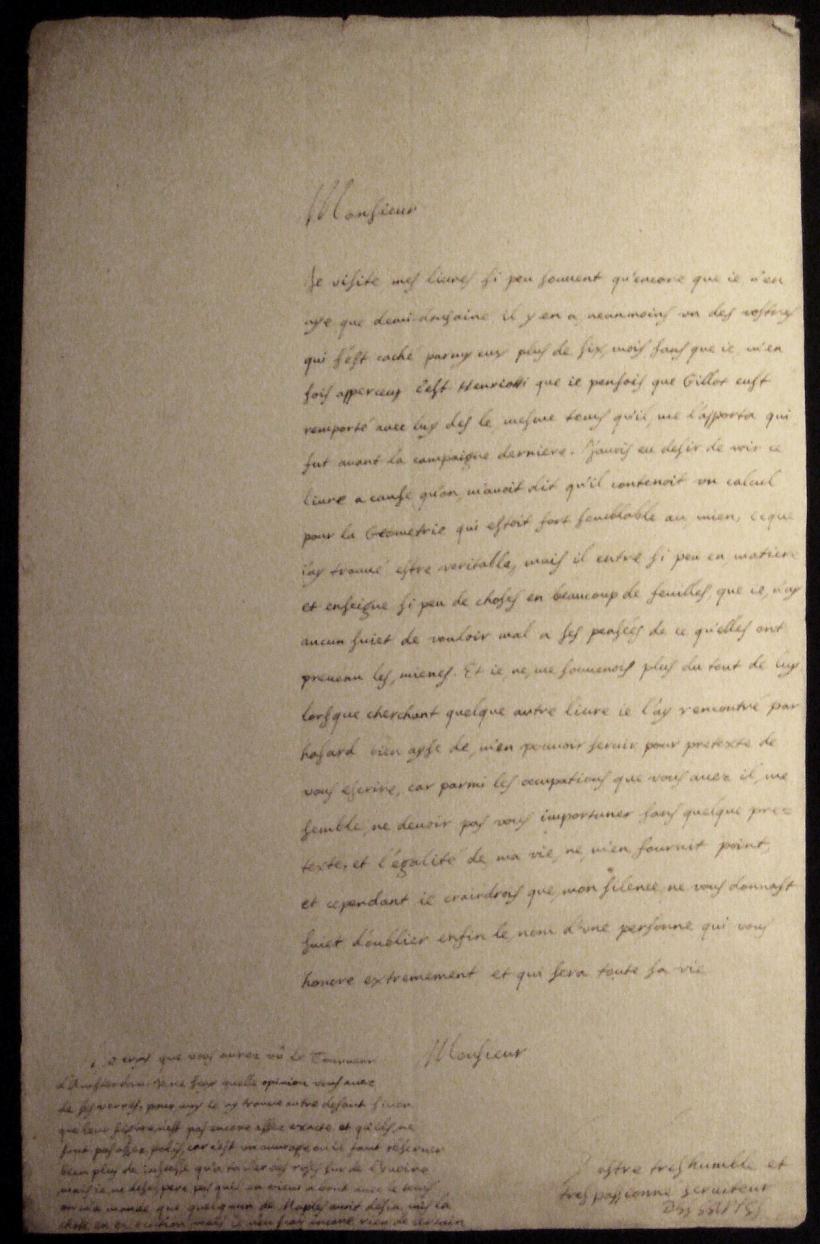 Monsieur
Je visite mes liures si peu souuent qu'encore que ie n'en
aye que demi douzaine il y en a neanmoins vn des vostres
qui s'est caché parmy eux plus de six mois sans que ie m'en
sois apperceu c'est Henrion que ie pensois que Gillot eust
remporté auec luy des le mesme temps qu'il me l'apporta qui
fut auant la campaigne derniere. J'auois eu desir de voir ce
liure a cause qu'on m'auoit dit qu'il contenoit vn calcul
pour la Geometrie qui estoit fort semblable au mien, ce que
i'ay trouué estre veritable, mais il entre si peu en matiere
et enseigne si peu de choses en beaucoup de feuilles, que ie n'ay
aucun suiet de vouloir mal a ses pensées de ce qu'elles ont
preuenu les mienes. Et ie ne me souuenois plus du tout de luy
lorsque cherchant quelque autre liure ie l'ay rencontré par
hasard bien ayse de m'en pouuoir seruir pour pretexte de
vous escrire, car parmi les occupations que vous auez il me
semble ne deuoir pas vous importuner sans quelque pre-
texte, et l'égalité de ma vie ne m'en fournit point,
et cependant ie craindrois que mon silence ne vous donnast
suiet d'oublier enfin le nom d'vne personne qui vous
honore extremement et qui sera toute sa vie
Monsieur
Vostre tres humble et
tres passionné seruiteur
Descartes
Je croy que vous aurez vû le Tourneur
d'Amsterdam. Je ne sçay quelle opinion vous auez
de ses verres, pour moy ie n'y trouue autre defaut sinon
que leur figure n'est pas encore assez exacte et qu'ils ne
sont pas assez polis, car c'est vn ouurage ou il faut obseruer
bien plus de iustesse qu'a tourner des roses sur de l'yuoire
mais ie ne desespere pas qu'il en viene a bout auec le temps
on m'a mandé que quelqu'un de Naples auoit desia mis la
chose en execution mais ie n'en sçay encore rien de certain